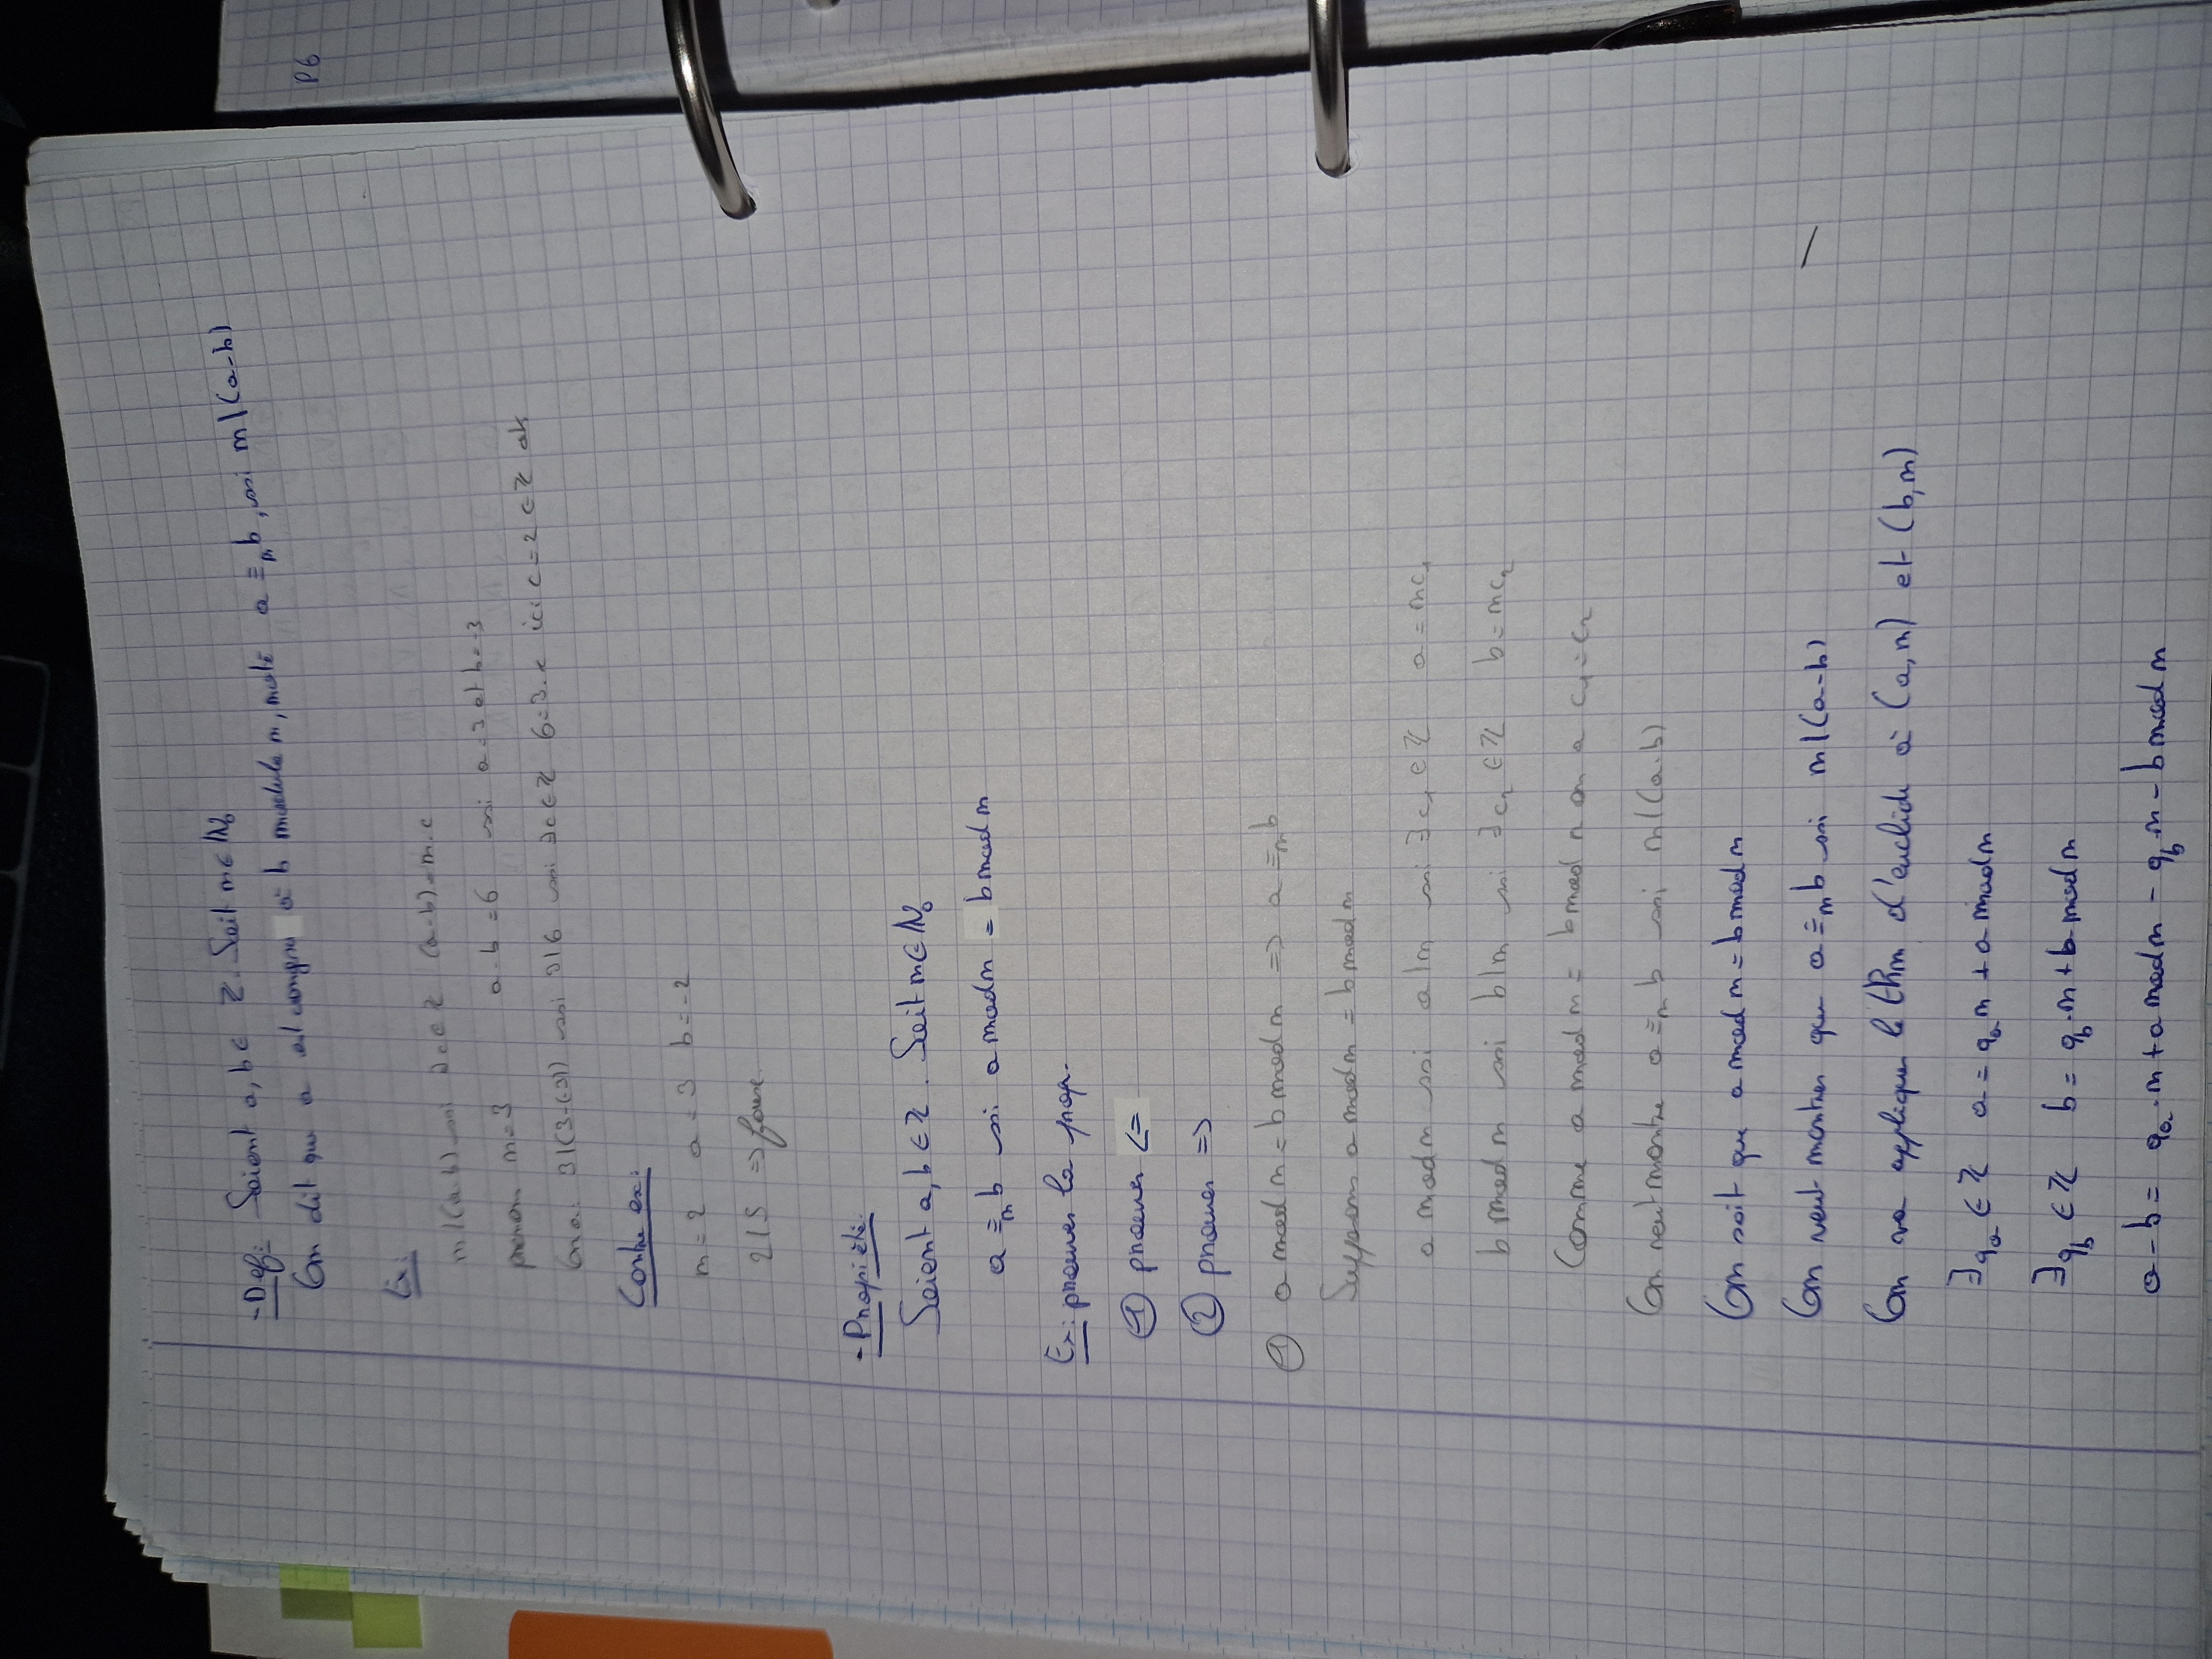 - Def: Soient a, b ∈ ℤ. Soit m ∈ ℕ₀
On dit que a est congru à b modulo m, noté a ≡ₘ b, ssi m|(a-b)
P6
Ex:
m|(a-b) ssi ∃c∈ℤ (a-b)=m.c
prenons m=3 a-b=6 ssi a=3 et b=-3
On a: 3|(3-(-3)) ssi 3|6 ssi ∃c∈ℤ 6=3.c ici c=2∈ℤ ok
Contre ex:
m=2 a=3 b=-2
2|5 => faux
- Propiété.
Soient a, b ∈ ℤ. Soit m ∈ ℕ₀
a ≡ₘ b ssi a mod m = b mod m
Ex: prouver la prop.
① prouver <=
② prouver =>
① a mod m = b mod m => a ≡ₘ b
Supposons a mod m = b mod m
a mod m ssi a|m ssi ∃c₁∈ℤ a=mc₁
b mod m ssi b|m ssi ∃c₂∈ℤ b=mc₂
Comme a mod m = b mod m on a c₁=c₂
On veut montre a ≡ₘ b ssi m|(a-b)
On sait que a mod m = b mod m
On veut montrer que a ≡ₘ b ssi m|(a-b)
On va appliquer le thm d'euclide à (a,m) et (b,m)
∃qₐ ∈ ℤ a = qₐm + a mod m
∃q_b ∈ ℤ b = q_b.m + b mod m
a-b = qₐ.m + a mod m - q_b.m - b mod m